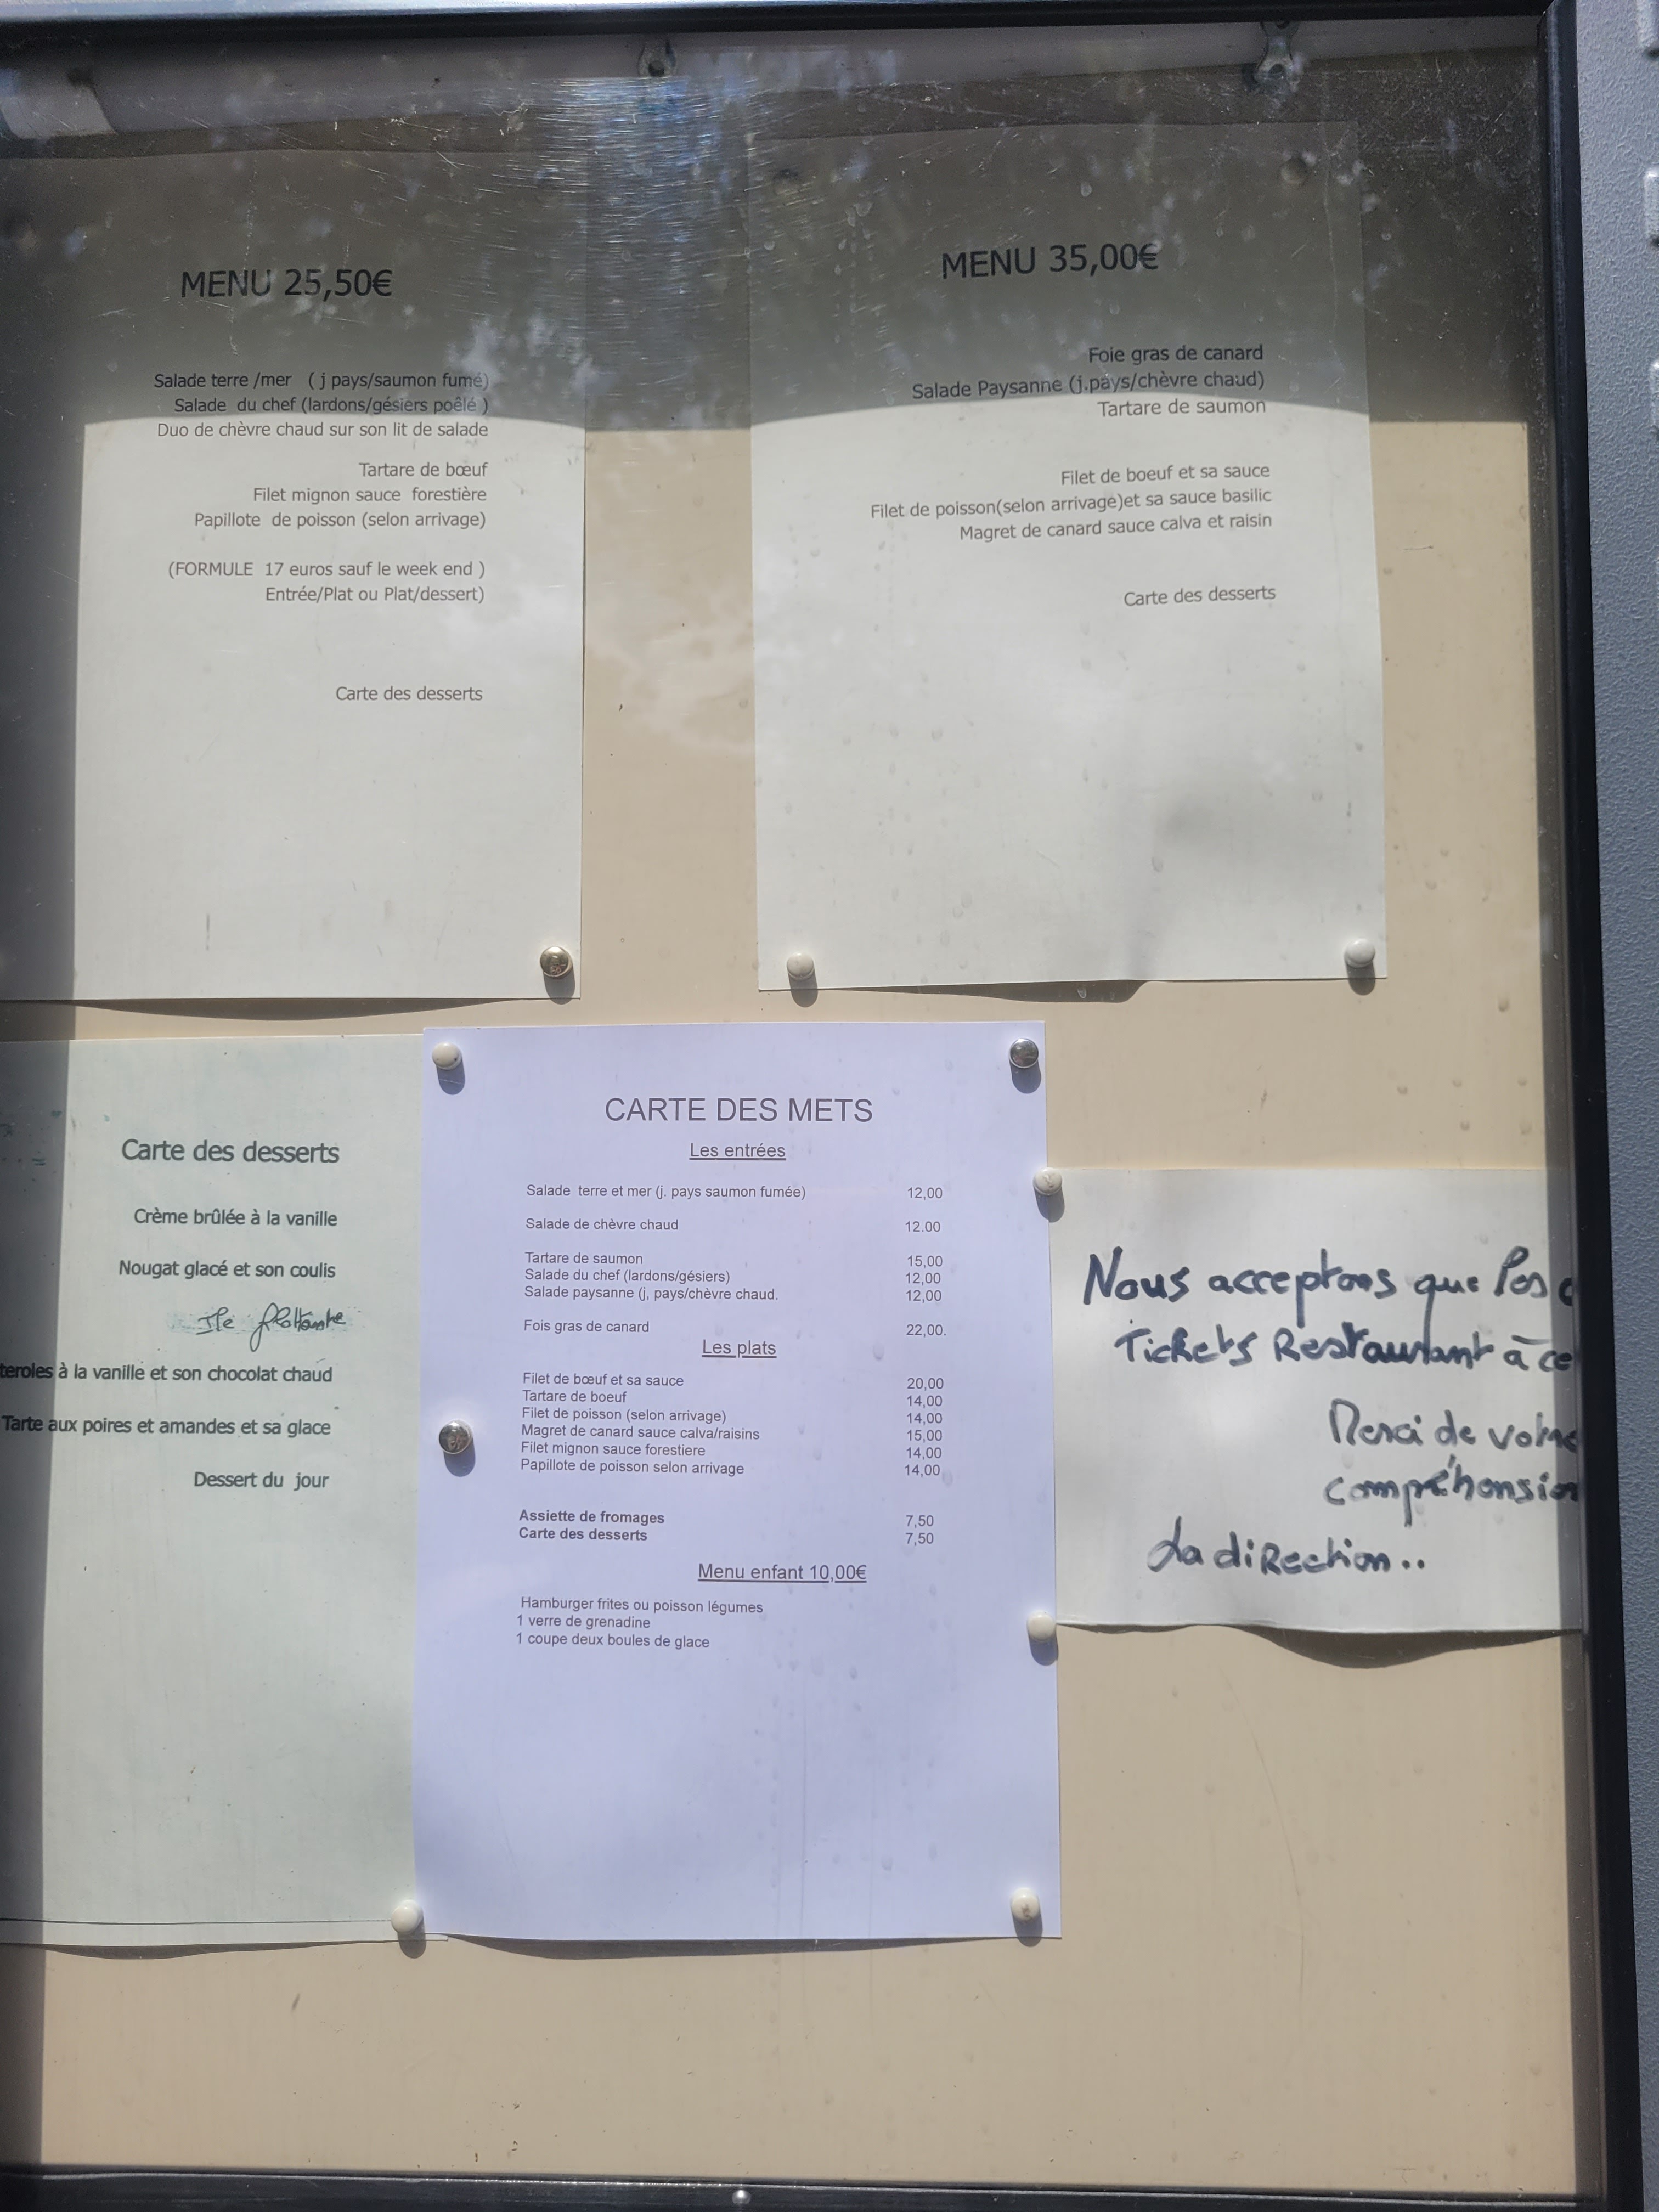 MENU 25,50€
Salade terre /mer ( j pays/saumon fumé)
Salade du chef (lardons/gésiers poêlé )
Duo de chèvre chaud sur son lit de salade
Tartare de bœuf
Filet mignon sauce forestière
Papillote de poisson (selon arrivage)
(FORMULE 17 euros sauf le week end )
Entrée/Plat ou Plat/dessert)
Carte des desserts
MENU 35,00€
Foie gras de canard
Salade Paysanne (j.pays/chèvre chaud)
Tartare de saumon
Filet de boeuf et sa sauce
Filet de poisson(selon arrivage)et sa sauce basilic
Magret de canard sauce calva et raisin
Carte des desserts
Carte des desserts
Crème brûlée à la vanille
Nougat glacé et son coulis
Ile flottante
teroles à la vanille et son chocolat chaud
Tarte aux poires et amandes et sa glace
Dessert du jour
CARTE DES METS
Les entrées
Salade terre et mer (j. pays saumon fumée) 12,00
Salade de chèvre chaud 12.00
Tartare de saumon 15,00
Salade du chef (lardons/gésiers) 12,00
Salade paysanne (j, pays/chèvre chaud. 12,00
Fois gras de canard 22,00.
Les plats
Filet de bœuf et sa sauce 20,00
Tartare de boeuf 14,00
Filet de poisson (selon arrivage) 14,00
Magret de canard sauce calva/raisins 15,00
Filet mignon sauce forestiere 14,00
Papillote de poisson selon arrivage 14,00
Assiette de fromages 7,50
Carte des desserts 7,50
Menu enfant 10,00€
Hamburger frites ou poisson légumes
1 verre de grenadine
1 coupe deux boules de glace
Nous acceptons que les
Tickets Restaurant à ce
Merci de votre
compréhension
La direction..